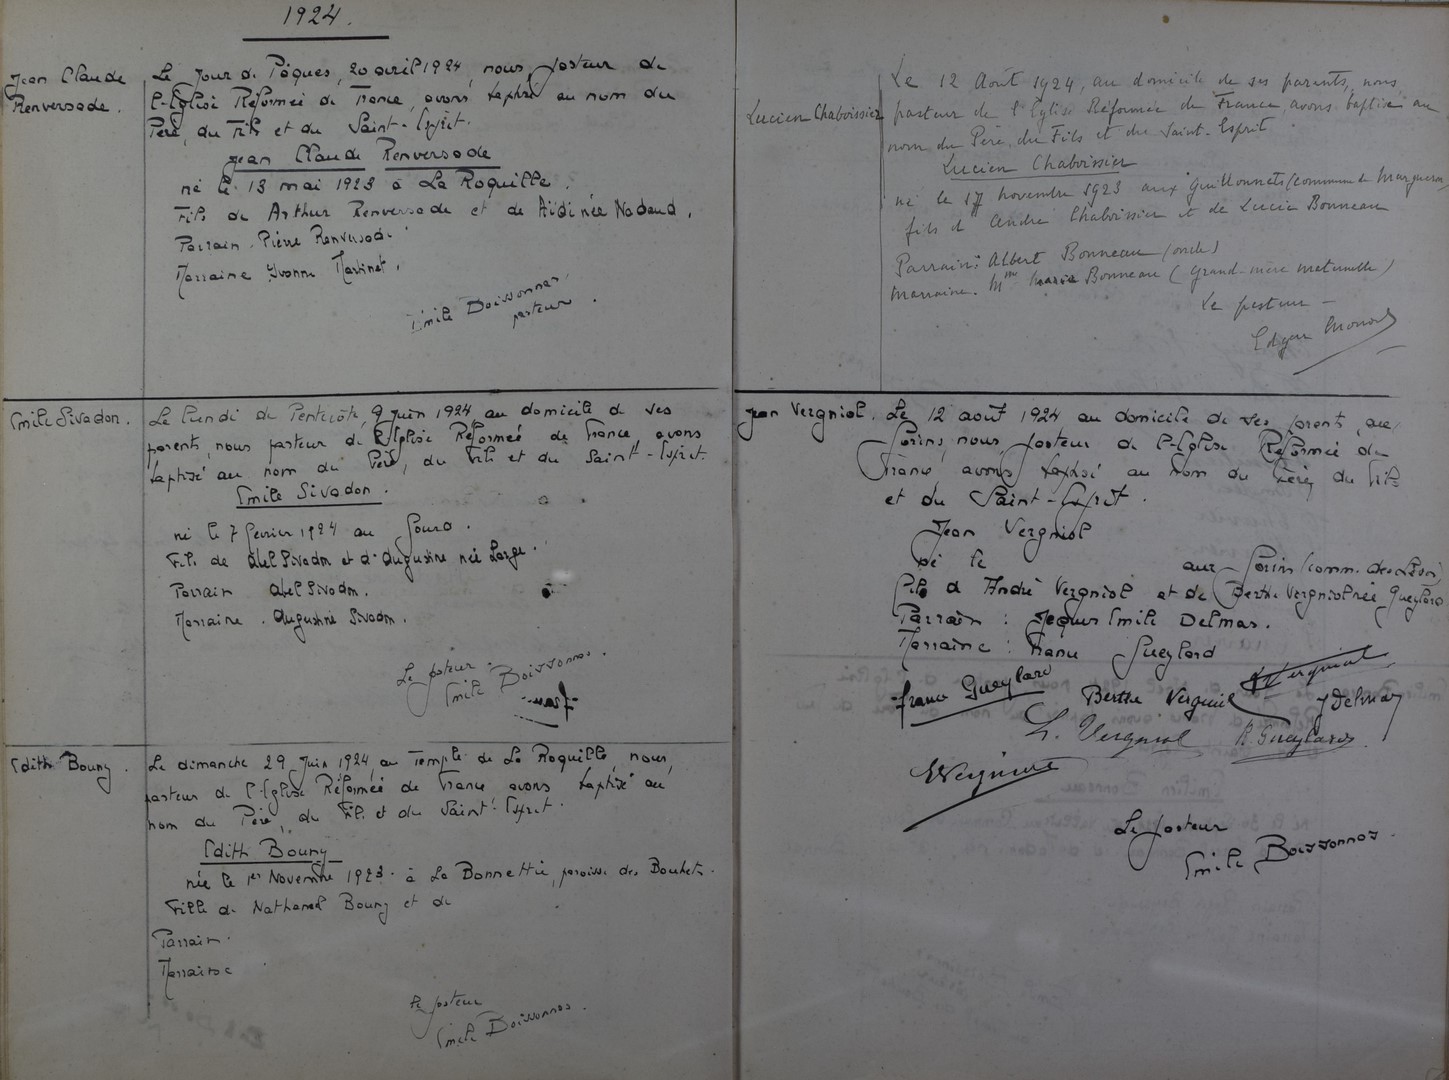 1924.
Jean Claude
Renversade.
Le jour de Pâques, 20 avril 1924, nous, pasteur de
l'Eglise Réformée de France, avons baptisé au nom du
Père, du Fils et du Saint-Esprit.
Jean Claude Renversade
né le 13 mai 1923 à La Roquille.
Fils de Arthur Renversade et de née Nadaud.
Parrain Pierre Renversade
Marraine Yvonne Martinet.
Emile Boissonnas
pasteur.
Emile Sivadon.
Le lundi de Pentecôte, 9 juin 1924, au domicile de ses
parents, nous pasteur de l'Eglise Réformée de France, avons
baptisé au nom du Père, du Fils et du Saint-Esprit.
Emile Sivadon.
né le 7 février 1924 au
Fils de Abel Sivadon et d'Augustine née Large.
Parrain Abel Sivadon.
Marraine. Augustine Sivadon.
Le pasteur.
Emile Boissonnas.
Edith Bouny.
Le dimanche 29 Juin 1924, au Temple de La Roquille, nous,
pasteur de l'Eglise Réformée de France avons baptisé au
nom du Père, du Fils et du Saint-Esprit.
Edith Bouny
née le 1er Novembre 1923 à La Bonnettie, paroisse des Bouhets.
Fille de Nathanael Bouny et de
Parrain.
Marraine
le pasteur
Emile Boissonnas.
Lucien Chaboissier
Le 12 Août 1924, au domicile de ses parents, nous
pasteur de l'Eglise Réformée de France, avons baptisé au
nom du Père, du Fils et du Saint-Esprit
Lucien Chaboissier
né le 17 novembre 1923 aux Guillonnets (commune de Margueron)
fils d'André Chaboissier et de Lucie Bonneau
Parrain: Albert Bonneau (oncle)
Marraine. Mme Bonneau (Grand-mère maternelle)
Le pasteur -
Edgar Monod
Jean Vergniol.
Le 12 août 1924 au domicile de ses parents, aux
Gorins, nous pasteur de l'Eglise Réformée de
France avons baptisé au nom du Père, du Fils
et du Saint-Esprit.
Jean Vergniol
né le aux Gorins (comm. des Lèves)
fils d'André Vergniol et de Berthe Vergniol née Gueylard
Parrain : Jacques Emile Delmas.
Marraine : France Gueylard
France Gueylard
Berthe Vergniol
Vergniol
J Delmas
L. Vergniol
R Gueylard
Vergniol
Le pasteur
Emile Boissonnas.